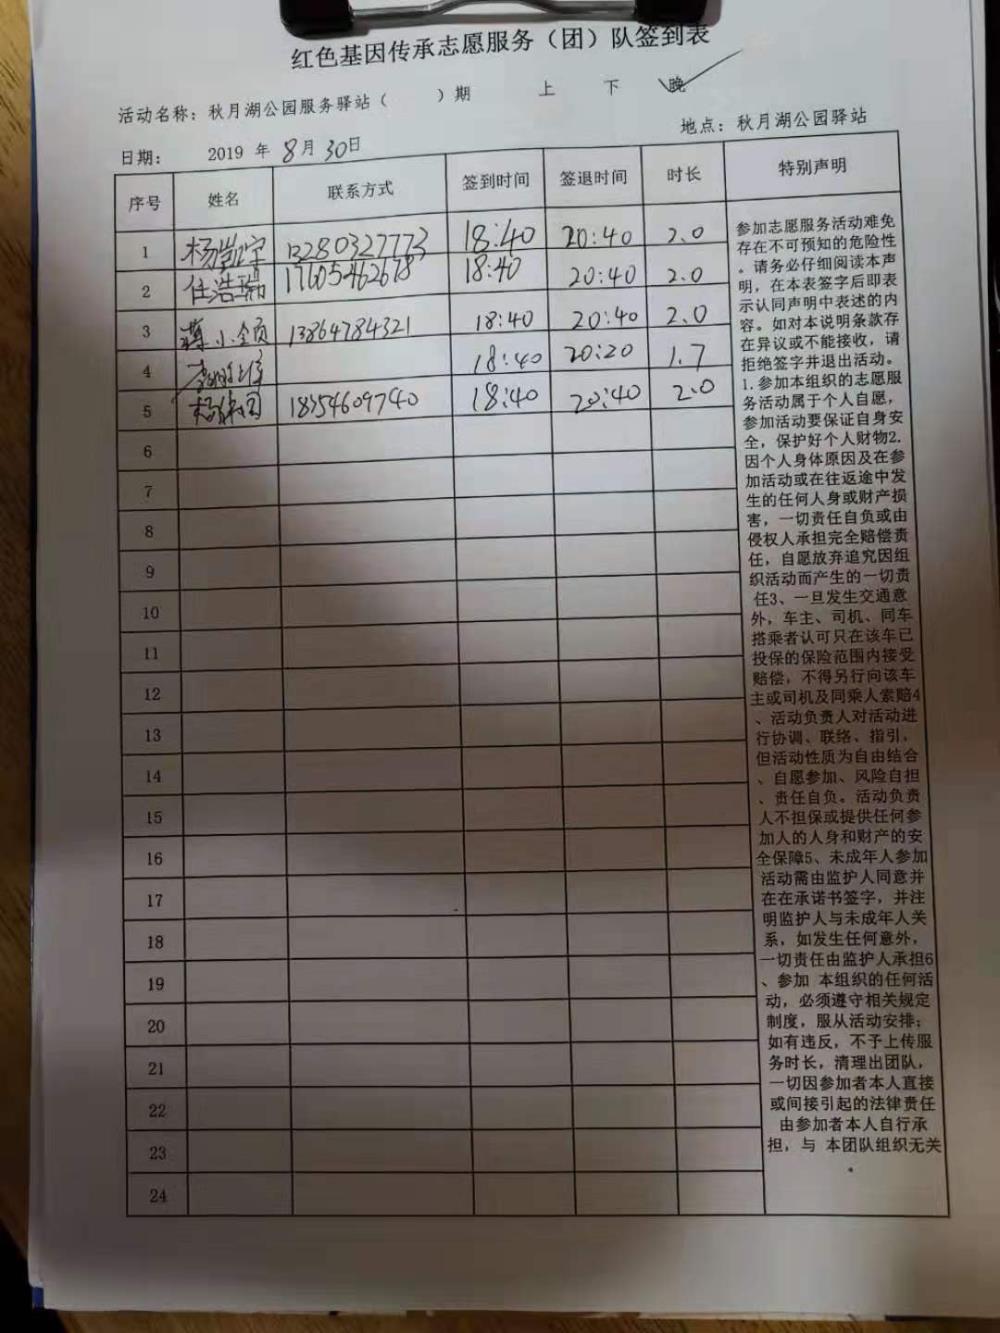 红色基因传承志愿服务（团）队签到表
活动名称：秋月湖公园服务驿站（ ）期 上 下 晚
地点：秋月湖公园驿站
日期： 2019 年 8月 30日
序号 姓名 联系方式 签到时间 签退时间 时长 特别声明
1 杨凯宇 13280327773 18:40 20:40 2.0
2 任浩瑞 17605462678 18:40 20:40 2.0
3 小 13864784321 18:40 20:40 2.0
4 18:40 20:20 1.7
5 杨 18754609740 18:40 20:40 2.0
6
7
8
9
10
11
12
13
14
15
16
17
18
19
20
21
22
23
24
参加志愿服务活动难免
存在不可预知的危险性
。请务必仔细阅读本声
明，在本表签字后即表
示认同声明中表述的内
容。如对本说明条款存
在异议或不能接收，请
拒绝签字并退出活动。
1.参加本组织的志愿服
务活动属于个人自愿，
参加活动要保证自身安
全，保护好个人财物2.
因个人身体原因及在参
加活动或在往返途中发
生的任何人身或财产损
害，一切责任自负或由
侵权人承担完全赔偿责
任，自愿放弃追究因组
织活动而产生的一切责
任3、一旦发生交通意
外，车主、司机、同车
搭乘者认可只在该车已
投保的保险范围内接受
赔偿，不得另行向该车
主或司机及同乘人索赔4
、活动负责人对活动进
行协调、联络、指引，
但活动性质为自由结合
、自愿参加、风险自担
、责任自负。活动负责
人不担保或提供任何参
加人的人身和财产的安
全保障5、未成年人参加
活动需由监护人同意并
在在承诺书签字，并注
明监护人与未成年人关
系，如发生任何意外，
一切责任由监护人承担6
、参加 本组织的任何活
动，必须遵守相关规定
制度，服从活动安排；
如有违反，不予上传服
务时长，清理出团队，
一切因参加者本人直接
或间接引起的法律责任
由参加者本人自行承
担，与 本团队组织无关
。